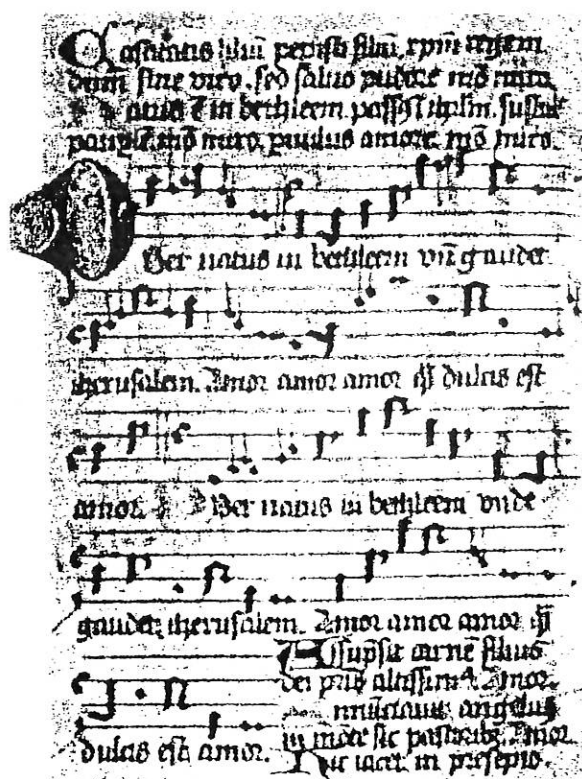 Castitatis lilium peperisti filium, xpm regem
deum sine viro. sed salvo pudore mō miro
natus ē in bethleem
mō miro. parvulus amore. mō miro.
Puer natus in bethleem vn̄ gaudet
iherusalem. Amor amor amor q̄ dulcis est
amor. Puer natus in bethleem vnde
gaudet iherusalem. Amor amor amor q̄
dulcis est amor.
Assūpsit carnē filius
dei pr̄is altissimi. Amor.
nunciavit angelus
pastoribꝫ. Amor.
Hic iacet in presepio.